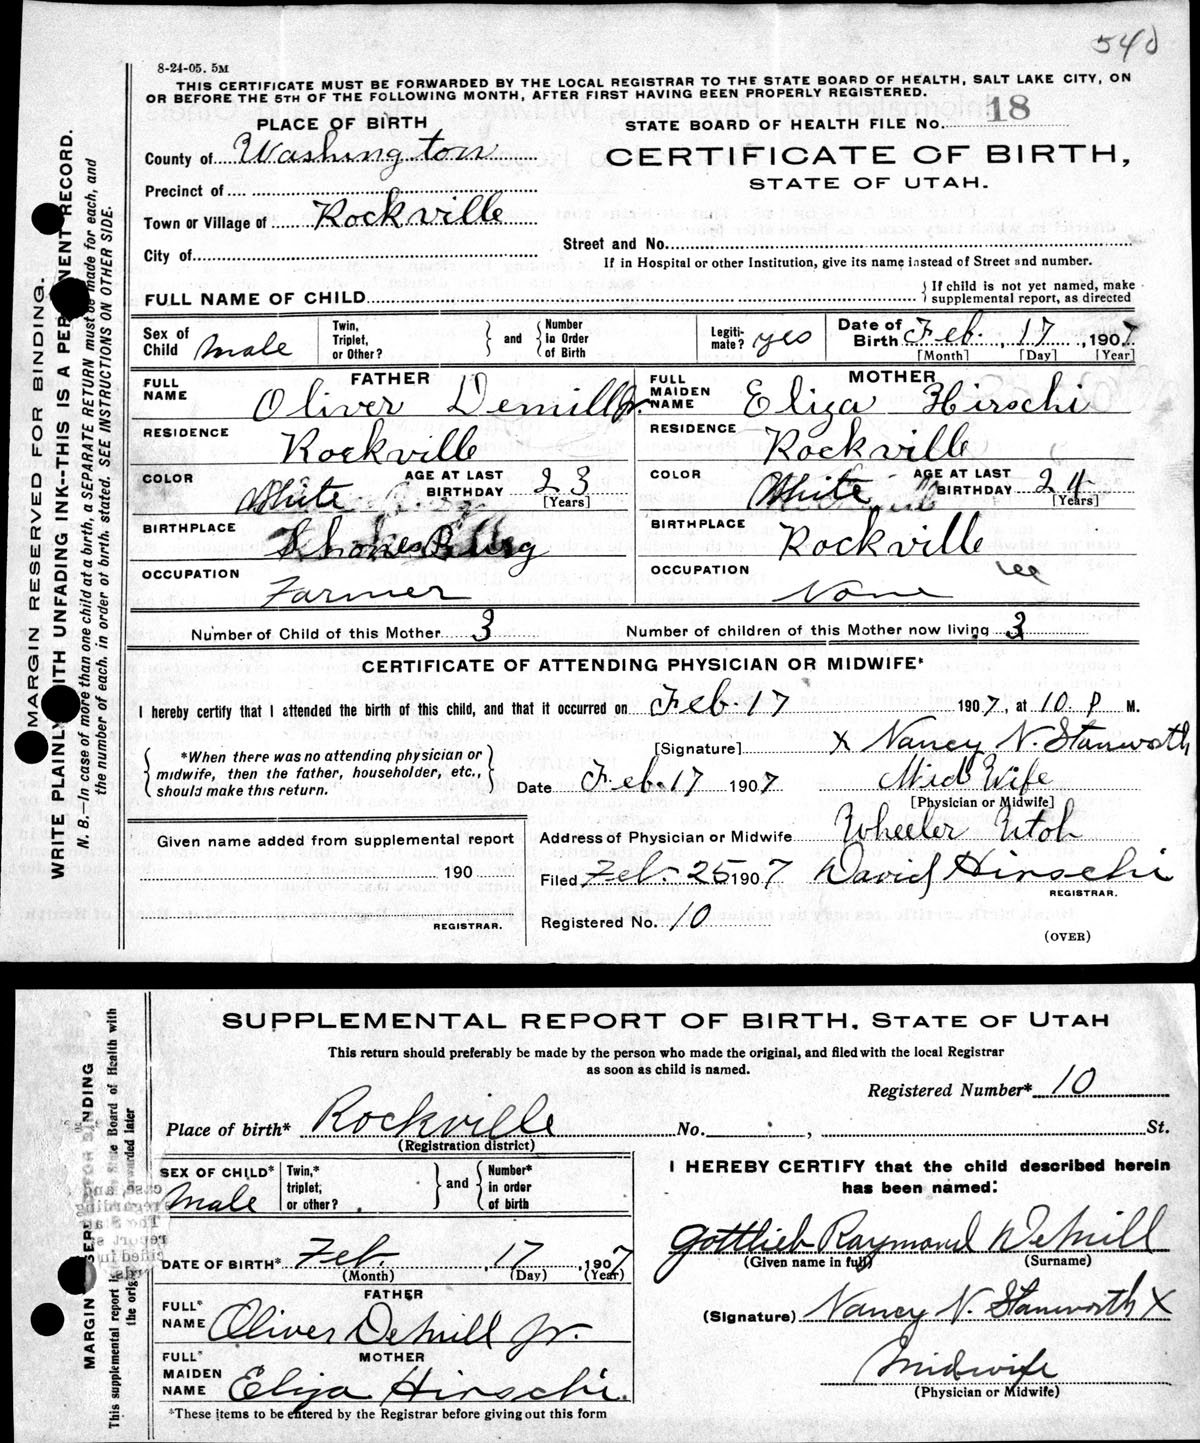 540
8-24-05. 5M
THIS CERTIFICATE MUST BE FORWARDED BY THE LOCAL REGISTRAR TO THE STATE BOARD OF HEALTH, SALT LAKE CITY, ON
OR BEFORE THE 5TH OF THE FOLLOWING MONTH, AFTER FIRST HAVING BEEN PROPERLY REGISTERED.
PLACE OF BIRTH
STATE BOARD OF HEALTH FILE No. 18
County of Washington
CERTIFICATE OF BIRTH,
STATE OF UTAH.
Precinct of
Town or Village of Rockville
Street and No.
City of
If in Hospital or other Institution, give its name instead of Street and number.
FULL NAME OF CHILD
{ If child is not yet named, make
supplemental report, as directed
Sex of Child Male
Twin, Triplet, or Other?
} and {
Number In Order of Birth
Legiti-mate? yes
Date of Birth Feb. 17, 1907
[Month] [Day] [Year]
FATHER
FULL NAME Oliver Demill Jr.
MOTHER
FULL MAIDEN NAME Eliza Hirschi
RESIDENCE Rockville
RESIDENCE Rockville
COLOR White
AGE AT LAST BIRTHDAY 23 [Years]
COLOR White
AGE AT LAST BIRTHDAY 24 [Years]
BIRTHPLACE
BIRTHPLACE Rockville
OCCUPATION Farmer
OCCUPATION None
Number of Child of this Mother 3
Number of children of this Mother now living 3
CERTIFICATE OF ATTENDING PHYSICIAN OR MIDWIFE*
I hereby certify that I attended the birth of this child, and that it occurred on Feb. 17 1907, at 10. P M.
{ *When there was no attending physician or
midwife, then the father, householder, etc.,
should make this return. }
[Signature] X Nancy N. Stanworth
Date Feb. 17 1907
Mid Wife
[Physician or Midwife]
Given name added from supplemental report
190
REGISTRAR.
Address of Physician or Midwife Wheeler Utah
Filed Feb. 25 1907 David Hirschi
REGISTRAR.
Registered No. 10
(OVER)
MARGIN RESERVED FOR BINDING.
WRITE PLAINLY WITH UNFADING INK--THIS IS A PERMANENT RECORD.
N. B.—In case of more than one child at a birth, a SEPARATE RETURN must be made for each, and
the number of each, in order of birth, stated. SEE INSTRUCTIONS ON OTHER SIDE.
SUPPLEMENTAL REPORT OF BIRTH, STATE OF UTAH
This return should preferably be made by the person who made the original, and filed with the local Registrar
as soon as child is named.
Registered Number* 10
Place of birth* Rockville No. , St.
(Registration district)
SEX OF CHILD* Male
Twin,* triplet, or other?
} and {
Number* in order of birth
I HEREBY CERTIFY that the child described herein
has been named:
DATE OF BIRTH* Feb. 17, 1907
(Month) (Day) (Year)
Gottlieb Raymond DeMill
(Given name in full) (Surname)
FATHER
FULL* NAME Oliver DeMill Jr.
(Signature) Nancy N. Stanworth X
MOTHER
FULL* MAIDEN NAME Eliza Hirschi.
Midwife
(Physician or Midwife)
*These items to be entered by the Registrar before giving out this form